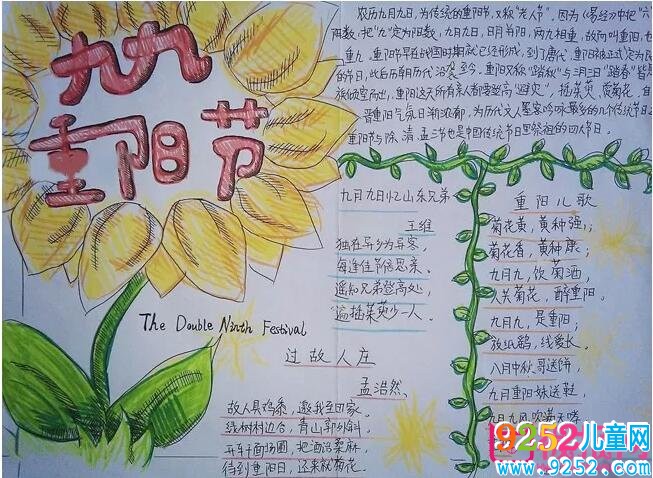 九九
重阳节
农历九月九日,为传统的重阳节,又称"老人节"。因为《易经》中把"六
阳数,把"九"定为阳数,九月九日,日月并阳,两九相重,故而叫重阳,也
重九。重阳节早在战国时期就已经形成,到了唐代,重阳被正式定为民
的节日,此后历朝历代沿袭至今。重阳又称"踏秋"与三月三日"踏春"皆是
族倾室而出,重阳这天所有亲人都要登高"避灾",插茱萸、赏菊花。自
晋重阳气氛日渐浓郁,为历代文人墨客吟咏最多的几个传统节日之
重阳节与除、清、盂三节也是中国传统节日里祭祖的四大节日。
九月九日忆山东兄弟
王维
独在异乡为异客,
每逢佳节倍思亲。
遥知兄弟登高处,
遍插茱萸少一人。
重阳儿歌
菊花黄,黄种强;
菊花香,黄种康;
九月九,饮菊酒,
人共菊花,醉重阳。
九月九,是重阳;
放纸鹞,线爱长。
八月中秋,哥送饼,
九月重阳妹送鞋,
九月九,风吹满天
The Double Ninth Festival
过故人庄
孟浩然
故人具鸡黍,邀我至田家。
绿树村边合,青山郭外斜。
开轩面场圃,把酒话桑麻。
待到重阳日,还来就菊花。
9252儿童网
www.9252.com